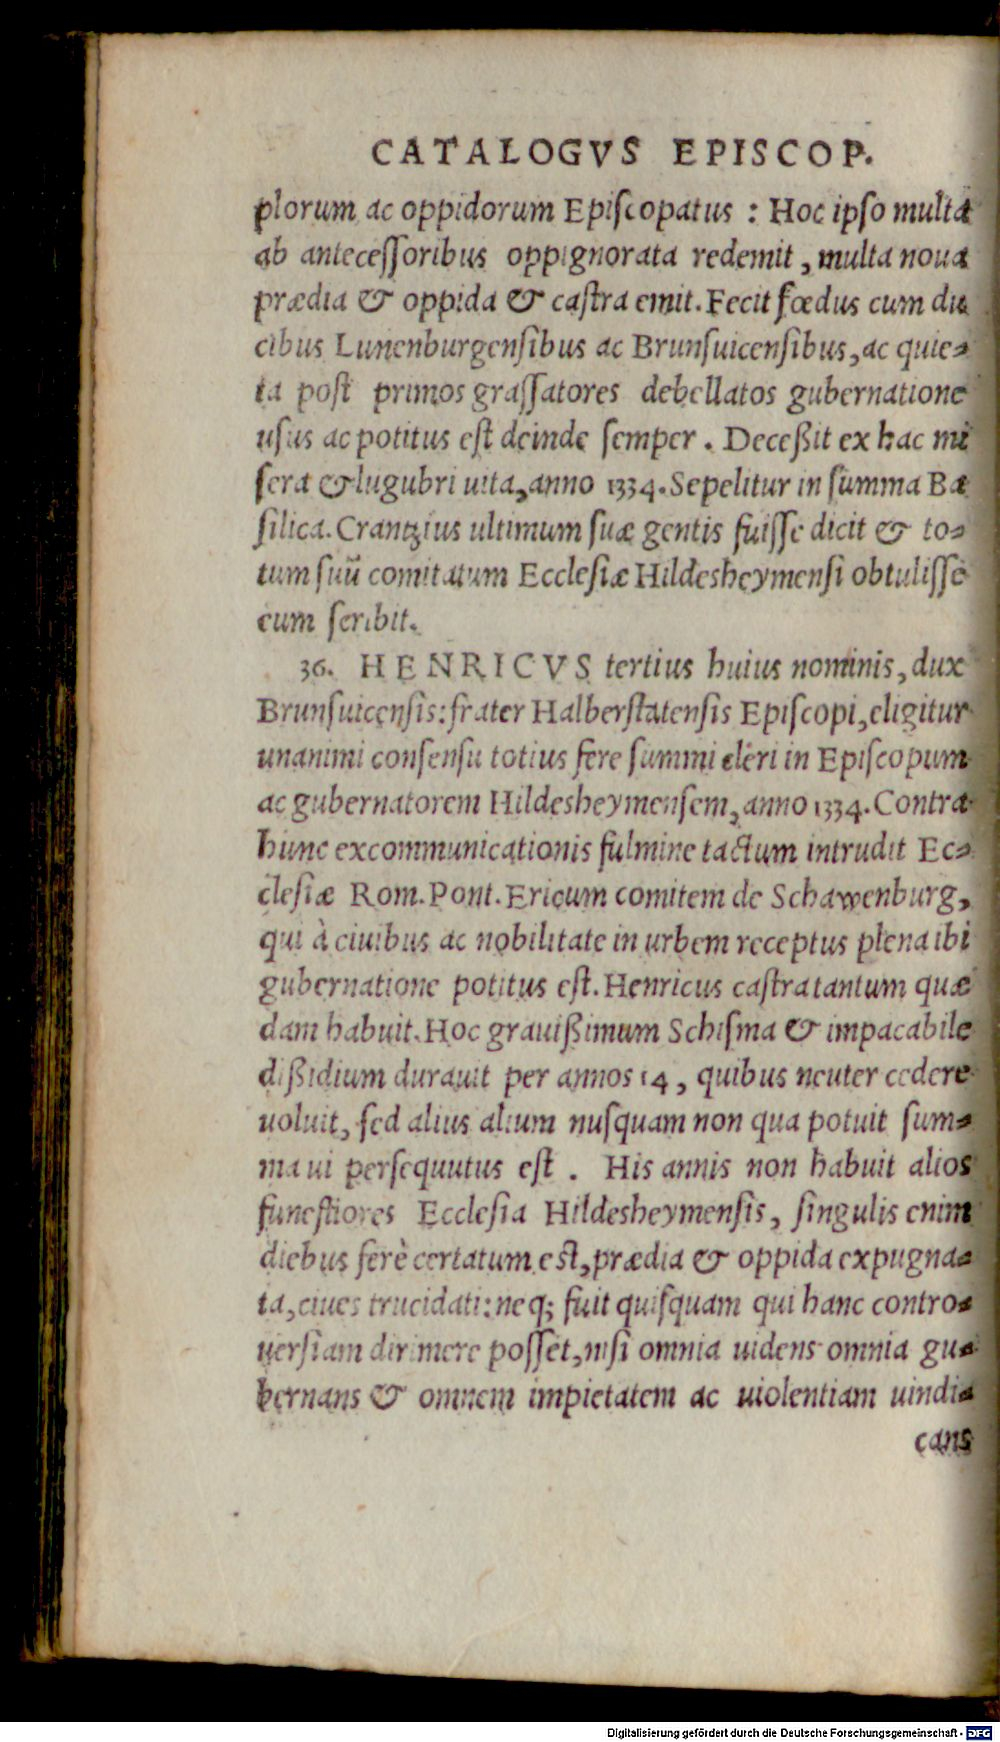 CATALOGVS EPISCOP.
plorum ac oppidorum Episcopatus : Hoc ipso multa
ab antecessoribus oppignorata redemit, multa noua
prædia & oppida & castra emit. Fecit fœdus cum du
cibus Lunenburgensibus ac Brunsuicensibus, ac quie-
ta post primos grassatores debellatos gubernatione
usus ac potitus est deinde semper. Deceßit ex hac mi
sera & lugubri uita, anno 1334. Sepelitur in summa Ba
silica. Crantzius ultimum suæ gentis fuisse dicit & to-
tum suũ comitatum Ecclesiæ Hildesheymensi obtulisse
cum scribit.
36. HENRICVS tertius huius nominis, dux
Brunsuicensis: frater Halberstatensis Episcopi, eligitur
unanimi consensu totius fere summi cleri in Episcopum
ac gubernatorem Hildesheymensem, anno 1334. Contra
hunc excommunicationis fulmine tactum intrudit Ec-
clesiæ Rom. Pont. Ericum comitem de Schawenburg,
qui à ciuibus ac nobilitate in urbem receptus plena ibi
gubernatione potitus est. Henricus castra tantum quæ
dam habuit. Hoc grauißimum Schisma & impacabile
dißidium durauit per annos 14, quibus neuter cedere
uoluit, sed alius alium nusquam non qua potuit sum-
ma ui persequutus est . His annis non habuit alios
funestiores Ecclesia Hildesheymensis, singulis enim
diebus ferè certatum est, prædia & oppida expugna-
ta, ciues trucidati: neq; fuit quisquam qui hanc contro-
uersiam dirimere posset, nisi omnia uidens omnia gu-
bernans & omnem impietatem ac uiolentiam uindi-
cans
Digitalisierung gefördert durch die Deutsche Forschungsgemeinschaft - DFG